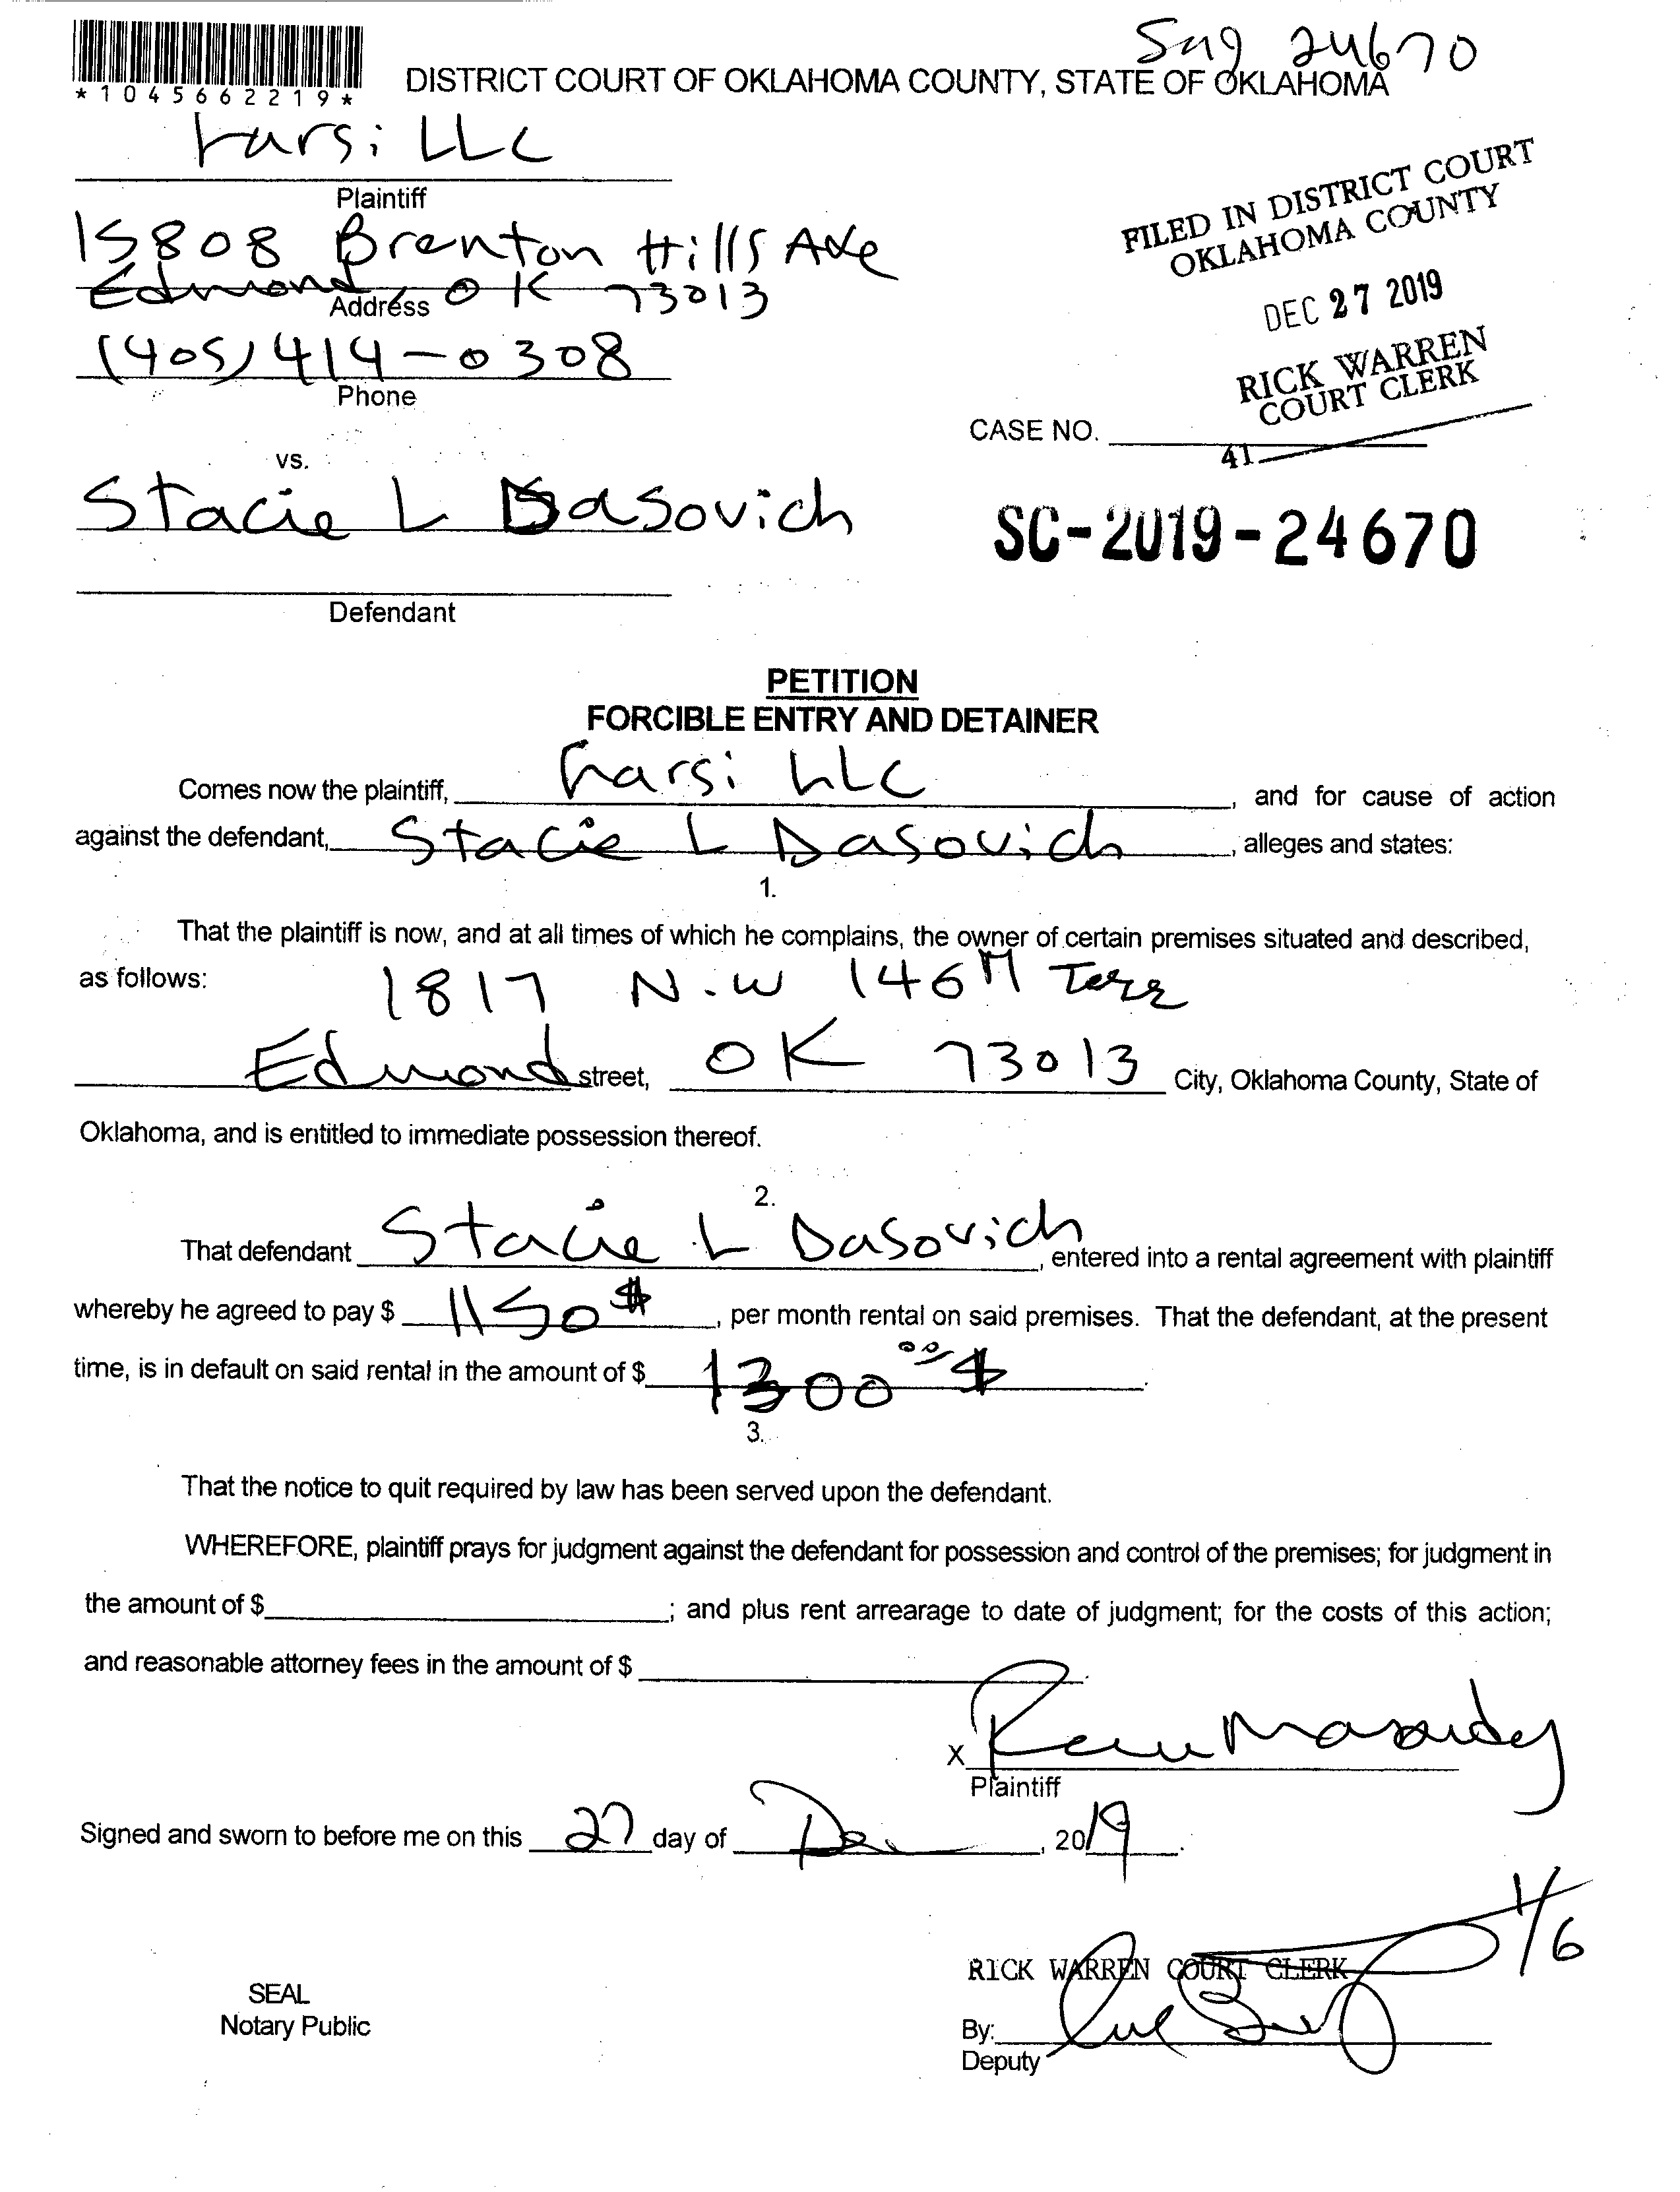 Sug 24670
*1045662219*
DISTRICT COURT OF OKLAHOMA COUNTY, STATE OF OKLAHOMA
Farsi LLC
Plaintiff
15808 Brenton Hills Ave
Edmond, OK 73013
Address
(405) 414-0308
Phone
FILED IN DISTRICT COURT
OKLAHOMA COUNTY
DEC 27 2019
RICK WARREN
COURT CLERK
CASE NO.
41
vs.
Stacie L Dasovich
SC-2019-24670
Defendant
PETITION
FORCIBLE ENTRY AND DETAINER
Comes now the plaintiff, Farsi LLC, and for cause of action
against the defendant, Stacie L Dasovich, alleges and states:
1.
That the plaintiff is now, and at all times of which he complains, the owner of certain premises situated and described,
as follows: 1817 N.W 146th Terr
Edmond street, OK 73013 City, Oklahoma County, State of
Oklahoma, and is entitled to immediate possession thereof.
2.
That defendant Stacie L Dasovich, entered into a rental agreement with plaintiff
whereby he agreed to pay $ 1150$, per month rental on said premises. That the defendant, at the present
time, is in default on said rental in the amount of $ 1300 00 $.
3.
That the notice to quit required by law has been served upon the defendant.
WHEREFORE, plaintiff prays for judgment against the defendant for possession and control of the premises; for judgment in
the amount of $ ; and plus rent arrearage to date of judgment; for the costs of this action;
and reasonable attorney fees in the amount of $ .
X
Plaintiff
Signed and sworn to before me on this 27 day of Dec, 2019.
1/6
RICK WARREN COURT CLERK
SEAL
Notary Public
By:
Deputy